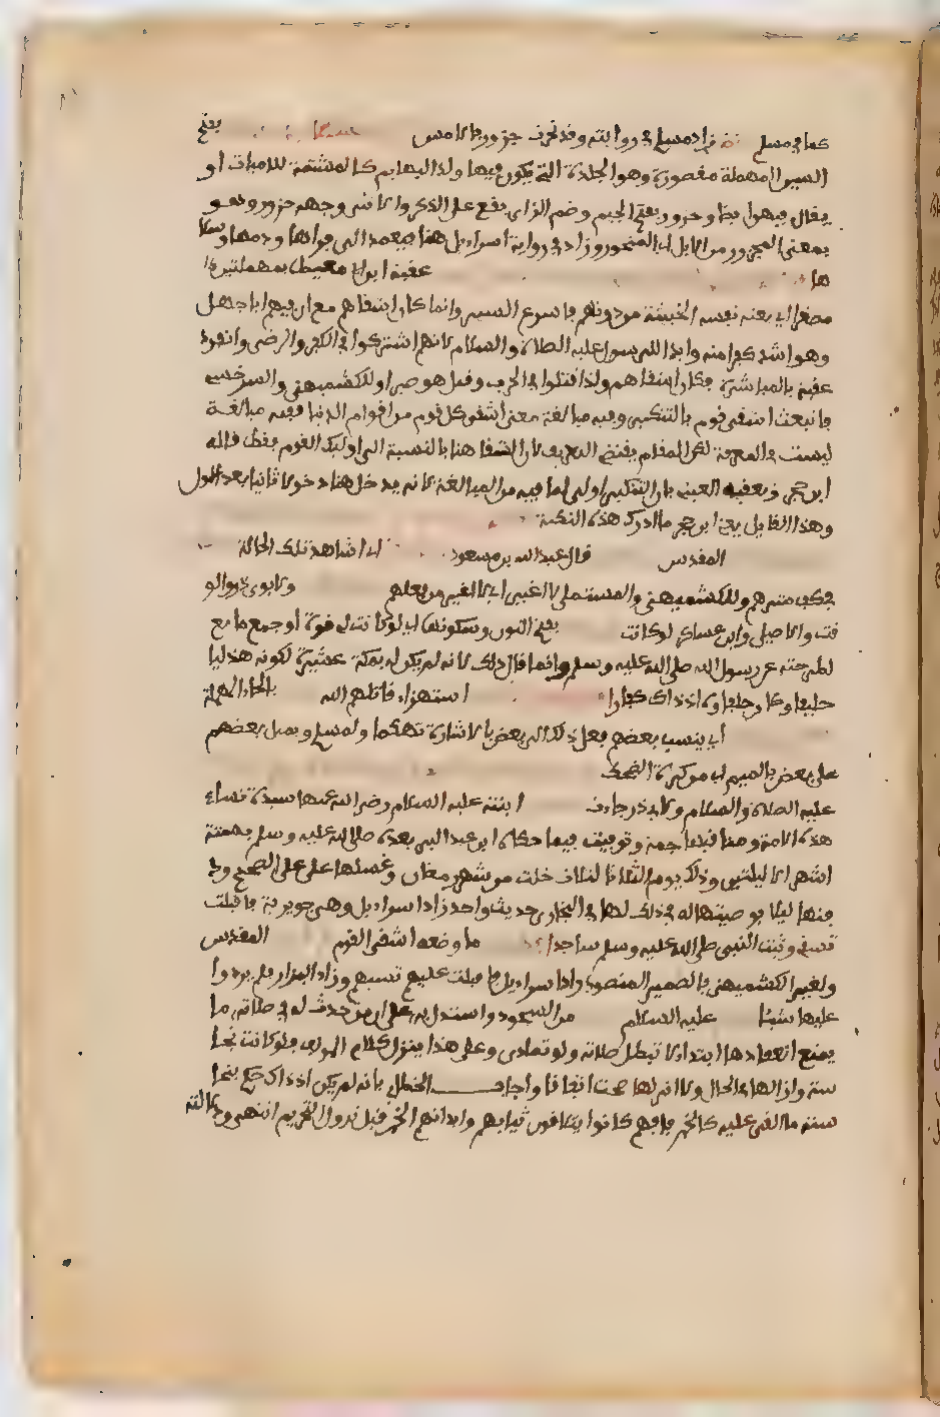 كما في مسلم زاد مسلم في روايته وقد نحرت جزور بالامس بفتح
السين المهملة مقصورة وهو الجلدة التي يكون فيها ولد البهايم كالمشيمة للادميات او
يقال فيهن ايضا وجزور بفتح الجيم وضم الزاي يقع على الذكر والانثى وجمعه جزر وهو
بمعنى المجزور من الابل اي المنحور وزاد في رواية اسرائيل هنا فيعمد الى فرثها ودمها وسلا
ها عقبة ابن ابي معيط بمهملتين
مصغرا اي بعثه نفسه الخبيثة من دونهم فاسرع السير وانما كان اشقاهم مع ان فيهم ابا جهل
وهو اشد كفرا منه وايذا للرسول عليه الصلاة والسلام لانهم اشتركوا في الكفر والرضى وانفرد
عقبة بالمباشرة فكان اشقاهم ولذا قتلوا في الحرب وقتل هو صبرا وللكشميهني والسرخسي
فانبعث اشقى قوم بالتنكير وفيه مبالغة معنى اشقى كل قوم من اقوام الدنيا ففيه مبالغة
ليست في المعرفة لكن المقام يقتضي التعريف لان الشقا هنا بالنسبة الى اوليك القوم فقط قاله
ابن حجر وتعقبه العيني بان التنكير اولى لما فيه من المبالغة لانه يدخل هنا دخولا ثانيا بعد الاول
وهذا القايل يعني ابن حجر ما ادرك هذه النكتة
المقدس قال عبد الله بن مسعود اي اشاهد تلك الحالة
وللكشميهني والمستملي لا اغير اي لا اغير من فعلهم ولابوي ذر والو
قت والاصيلي وابن عساكر لو كانت بفتح النون وسكونها اي لو كانت لي قوة او جمع مانع
لطرحته عن رسول الله صلى الله عليه وسلم وانما قال ذلك لانه لم يكن له بمكة عشيرة لكونه هذليا
حليفا وكان حلفاوه اذ ذاك كفارا استهزاء قاتلهم الله بالحاء المهملة
اي ينسب بعضهم فعل ذلك الى بعض بالاشارة تهكما ولمسلم ويميل بعضهم
على بعض بالميم اي من كثرة الضحك
عليه الصلاة والسلام ولابي ذر جاءت ابنته عليه السلام ورضي الله عنها سيدة نساء
هذه الامة ومناقبها جمة وتوفيت فيما حكاه ابن عبد البر بعده صلى الله عليه وسلم بستة
اشهر الا ليلتين وذلك يوم الثلاثا لثلاث خلت من شهر رمضان وغسلها علي على الصحيح ود
فنها ليلا بوصيتها له في ذلك لها في البخاري حديث واحد زاد اسرائيل وهي جويرية فاقبلت
تسعى وثبت النبي صلى الله عليه وسلم ساجدا ما وضعه اشقى القوم المقدس
ولغير الكشميهني بالضمير المنصوب زاد اسرائيل فاقبلت عليهم تسبهم وزاد البزار فلم يردوا
عليها شيئا عليه السلام من السجود واستدل به على ان من حدث له في صلاته ما
يمنع انعقادها ابتداء لا تبطل صلاته ولو تمادى وعلى هذا ينزل كلام المولف فلو كانت نجا
سة وازالها في الحال ولا اثر لها صحت اتفاقا واجاب الخطابي بانه لم يكن اذ ذاك حكم بنجا
سة ما القي عليه كالخمر فانهم كانوا يتلاقون ثيابهم وابدانهم الخمر قبل نزول التحريم انتهى ودلالته